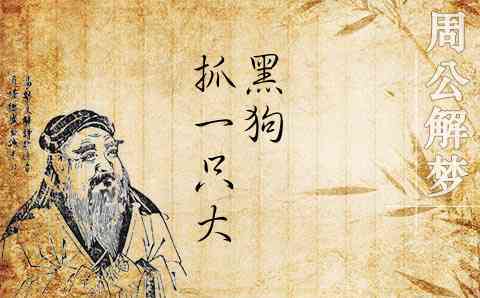 周公解梦
黑狗
抓一只大